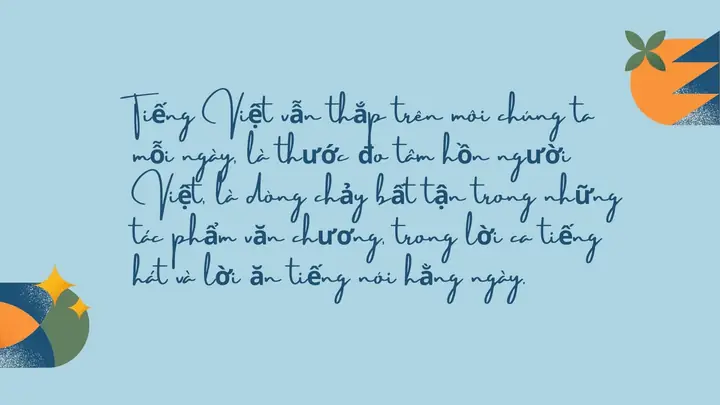 Tiếng Việt vẫn thắp trên môi chúng ta
mỗi ngày, là thước đo tâm hồn người
Việt, là dòng chảy bất tận trong những
tác phẩm văn chương, trong lời ca tiếng
hát và lời ăn tiếng nói hằng ngày.